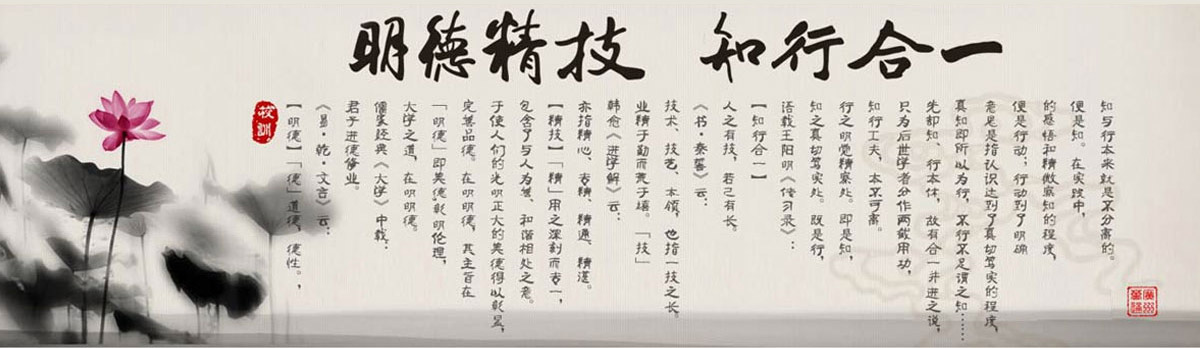 明德精技 知行合一
校训
【明德】「德」道德，德性。，
《易·乾·文言》云：
君子进德修业。
儒家经典《大学》中载：
大学之道，在明明德。
「明德」即美德，彰明伦理，
完善品德。在明明德，其主旨在
于使人们的光明正大的美德得以彰显，
包含了与人为善、和谐相处之意。
【精技】「精」用之深刻而专一，
亦指精心、专精、精通、精湛。
韩愈《进学解》云：
业精于勤而荒于嬉。「技」
技术、技艺、本领，也指一技之长。
《书·秦誓》云：
人之有技，若己有长。
【知行合一】
语载王阳明《传习录》：
知之真切笃实处。既是行，
行之明觉精察处。即是知，
知行工夫，本不可离。
只为后世学者分作两截用功，
先却知、行本体，故有合一并进之说，
真知即所以为行，不行不足谓之知……
意思是指认识达到了真切笃实的程度，
便是行动；行动到了明确
的感悟和精微察知的程度，
便是知。在实践中，
知与行本来就是不分离的。